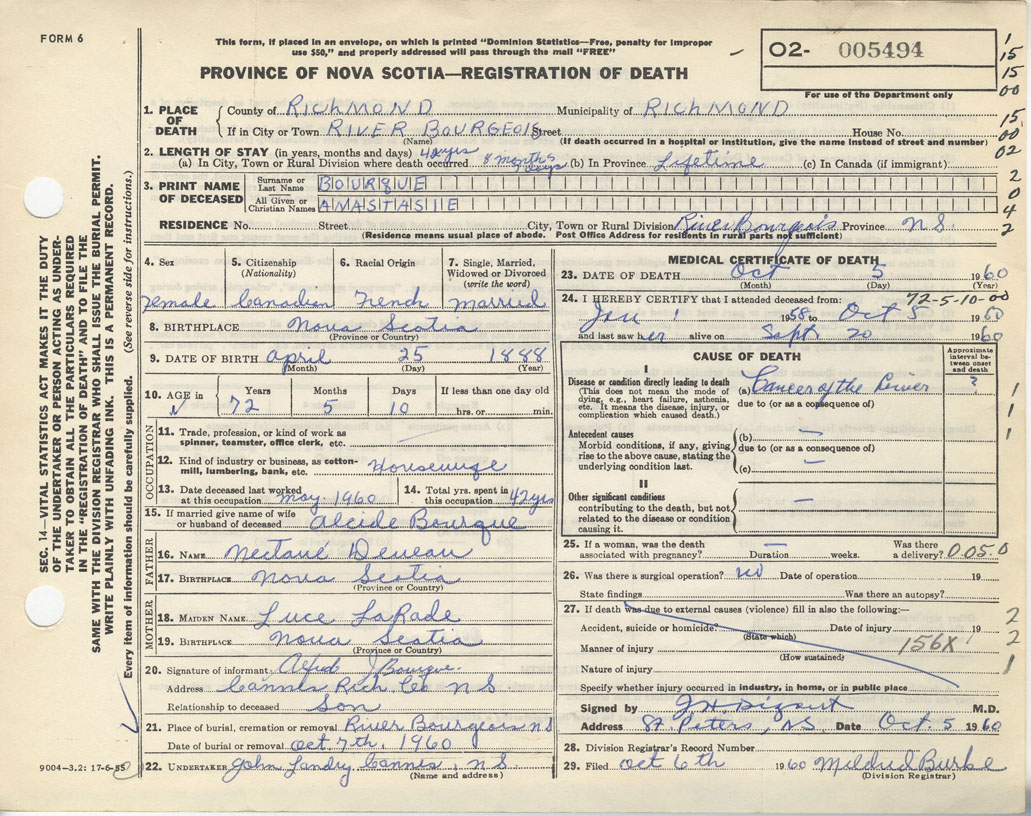 FORM 6
This form, if placed in an envelope, on which is printed "Dominion Statistics—Free, penalty for improper
use $50," and properly addressed will pass through the mail "FREE"
PROVINCE OF NOVA SCOTIA—REGISTRATION OF DEATH
02- 005494
For use of the Department only
1
15
15
00
15
00
02
2
0
4
2
SEC. 14—VITAL STATISTICS ACT MAKES IT THE DUTY
OF THE UNDERTAKER OR PERSON ACTING AS UNDER-
TAKER TO OBTAIN ALL THE PARTICULARS REQUIRED
IN THE "REGISTRATION OF DEATH" AND TO FILE THE
SAME WITH THE DIVISION REGISTRAR WHO SHALL ISSUE THE BURIAL PERMIT.
WRITE PLAINLY WITH UNFADING INK. THIS IS A PERMANENT RECORD.
Every item of information should be carefully supplied. (See reverse side for instructions.)
1. PLACE OF DEATH County of RICHMOND Municipality of RICHMOND
If in City or Town RIVER BOURGEOIS Street House No.
(Name) (If death occurred in a hospital or institution, give the name instead of street and number)
2. LENGTH OF STAY (in years, months and days) 42 yrs
(a) In City, Town or Rural Division where death occurred 8 months days (b) In Province Lifetime (c) In Canada (if immigrant)
3. PRINT NAME OF DECEASED
Surname or Last Name BOURQUE
All Given or Christian Names ANASTASIE
RESIDENCE No. Street City, Town or Rural Division River Bourgeois Province N.S.
(Residence means usual place of abode. Post Office Address for residents in rural parts not sufficient)
4. Sex
Female
5. Citizenship (Nationality)
Canadian
6. Racial Origin
French
7. Single, Married, Widowed or Divorced (write the word)
Married
8. BIRTHPLACE Nova Scotia
(Province or Country)
9. DATE OF BIRTH April 25 1888
(Month) (Day) (Year)
10. AGE in Years Months Days If less than one day old
72 5 10 hrs. or min.
OCCUPATION
11. Trade, profession, or kind of work as
spinner, teamster, office clerk, etc. —
12. Kind of industry or business, as cotton-
mill, lumbering, bank, etc. Housewife
13. Date deceased last worked at this occupation May. 1960
14. Total yrs. spent in this occupation 42 yrs
15. If married give name of wife or husband of deceased Alcide Bourque
FATHER
16. NAME Nectané Deveau
17. BIRTHPLACE Nova Scotia
(Province or Country)
MOTHER
18. MAIDEN NAME Luce LaRade
19. BIRTHPLACE Nova Scotia
(Province or Country)
20. Signature of informant Alfred J Bourque.
Address Cannes Rich. Co N S
Relationship to deceased Son
21. Place of burial, cremation or removal River Bourgeois NS
Date of burial or removal Oct. 7th. 1960
22. UNDERTAKER John Landry Cannes, N.S
(Name and address)
9004-3.2: 17-6-55
MEDICAL CERTIFICATE OF DEATH
23. DATE OF DEATH Oct 5 1960
(Month) (Day) (Year)
24. I HEREBY CERTIFY that I attended deceased from: 72-5-10-00
Jan 1 1958 to Oct 5 1960
and last saw her alive on Sept. 20 1960
CAUSE OF DEATH
Approximate interval between onset and death
I
Disease or condition directly leading to death
(This does not mean the mode of dying, e.g., heart failure, asthenia, etc. It means the disease, injury, or complication which caused death.)
(a) Cancer of the Liver ?
due to (or as a consequence of)
Antecedent causes
Morbid conditions, if any, giving rise to the above cause, stating the underlying condition last.
(b) —
due to (or as a consequence of)
(c) —
II
Other significant conditions
contributing to the death, but not related to the disease or condition causing it. —
1
1
1
25. If a woman, was the death associated with pregnancy? — Duration weeks. Was there a delivery? 0.05.0
26. Was there a surgical operation? no Date of operation 19
State findings Was there an autopsy?
27. If death was due to external causes (violence) fill in also the following:—
Accident, suicide or homicide? Date of injury 19
(State which)
Manner of injury 156X
(How sustained)
Nature of injury
Specify whether injury occurred in industry, in home, or in public place
2
2
1
Signed by M.D.
Address St. Peters, NS Date Oct. 5 1960
28. Division Registrar's Record Number
29. Filed Oct 6th 1960 Mildred Burke
(Division Registrar)